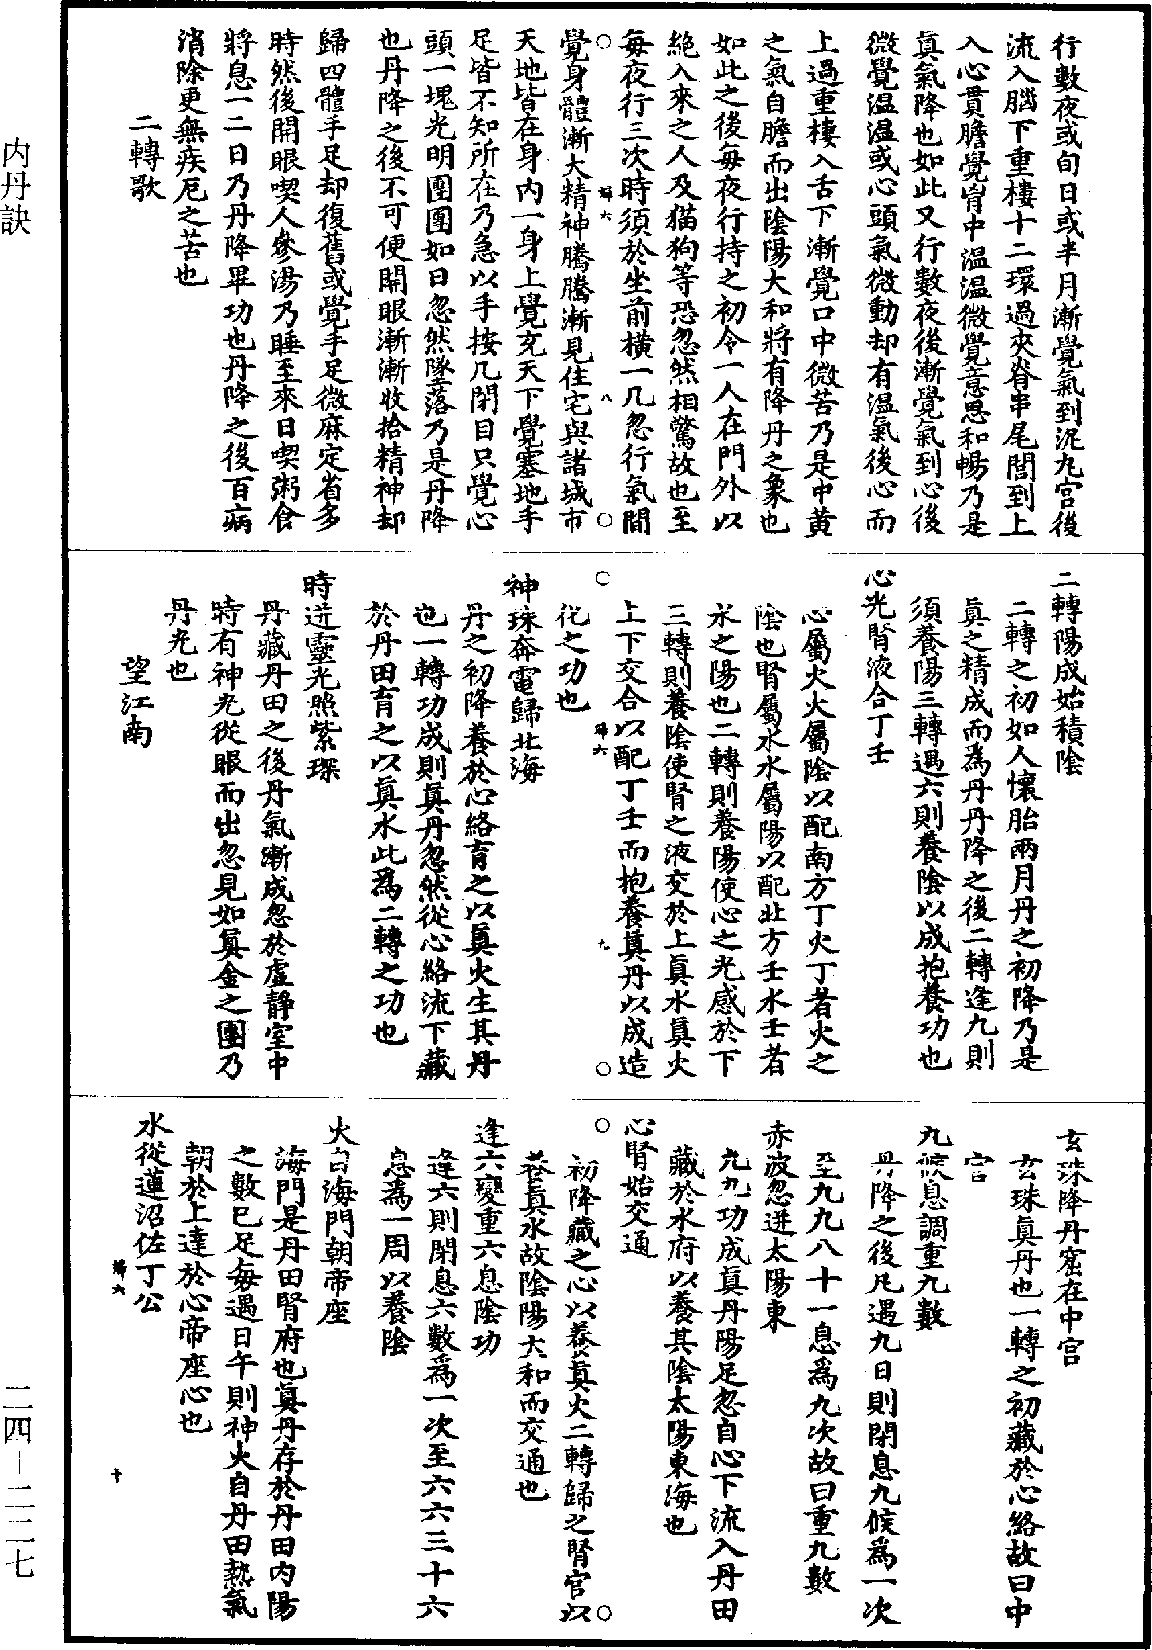 行數夜或旬日或半月漸覺氣到泥丸宮後
流入腦下重樓十二環過夾脊串尾閭到上
入心貫膽覺胷中溫溫微覺意思和暢乃是
真氣降也如此又行數夜後漸覺氣到心後
微覺溫溫或心頭氣微動却有溫氣後心而
上過重樓入舌下漸覺口中微苦乃是中黃
之氣自膽而出陰陽大和將有降丹之象也
如此之後每夜行持之初令一人在門外以
絕入來之人及猫狗等恐忽然相驚故也至
每夜行三次時須於坐前橫一几忽行氣間
覺身體漸大精神騰騰漸見住宅與諸城市
天地皆在身內一身上覺充天下覺塞地手
足皆不知所在乃急以手按几閉目只覺心
頭一塊光明團團如日忽然墜落乃是丹降
也丹降之後不可便開眼漸漸收拾精神却
歸四體手足却復舊或覺手足微麻定省多
時然後開眼喫人參湯乃睡至來日喫粥食
將息一二日乃丹降畢功也丹降之後百病
消除更無疾厄之苦也
二轉歌
二轉陽成始積陰
二轉之初如人懷胎兩月丹之初降乃是
真之精成而為丹丹降之後二轉逢九則
須養陽三轉遇六則養陰以成抱養功也
心光腎液合丁壬
心屬火火屬陰以配南方丁火丁者火之
陰也腎屬水水屬陽以配北方壬水壬者
水之陽也二轉則養陽使心之光感於下
三轉則養陰使腎之液交於上真水真火
上下交合以配丁壬而抱養真丹以成造
化之功也
神珠奔電歸北海
丹之初降養於心絡育之以真火生其丹
也一轉功成則真丹忽然從心絡流下藏
於丹田育之以真水此為二轉之功也
時迸靈光照紫琛
丹藏丹田之後丹氣漸成忽於虛靜室中
時有神光從眼而出忽見如真金之團乃
丹光也
望江南
玄珠降丹窟在中宮
玄珠真丹也一轉之初藏於心絡故曰中
宮
九候息調重九數
丹降之後凡遇九日則閉息九候為一次
至九九八十一息為九次故曰重九數
赤波忽迸太陽東
九九功成真丹陽足忽自心下流入丹田
藏於水府以養其陰太陽東海也
心腎始交通
初降藏之心以養真火二轉歸之腎官以
養真水故陰陽大和而交通也
逢六變重六息陰功
逢六則閉息六數為一次至六六三十六
息為一周以養陰
火自海門朝帝座
海門是丹田腎府也真丹存於丹田內陽
之數已足每遇日午則神火自丹田熱氣
朝於上達於心帝座心也
水從蓮沼佐丁公
八
九
十
内丹訣
二四—二二七